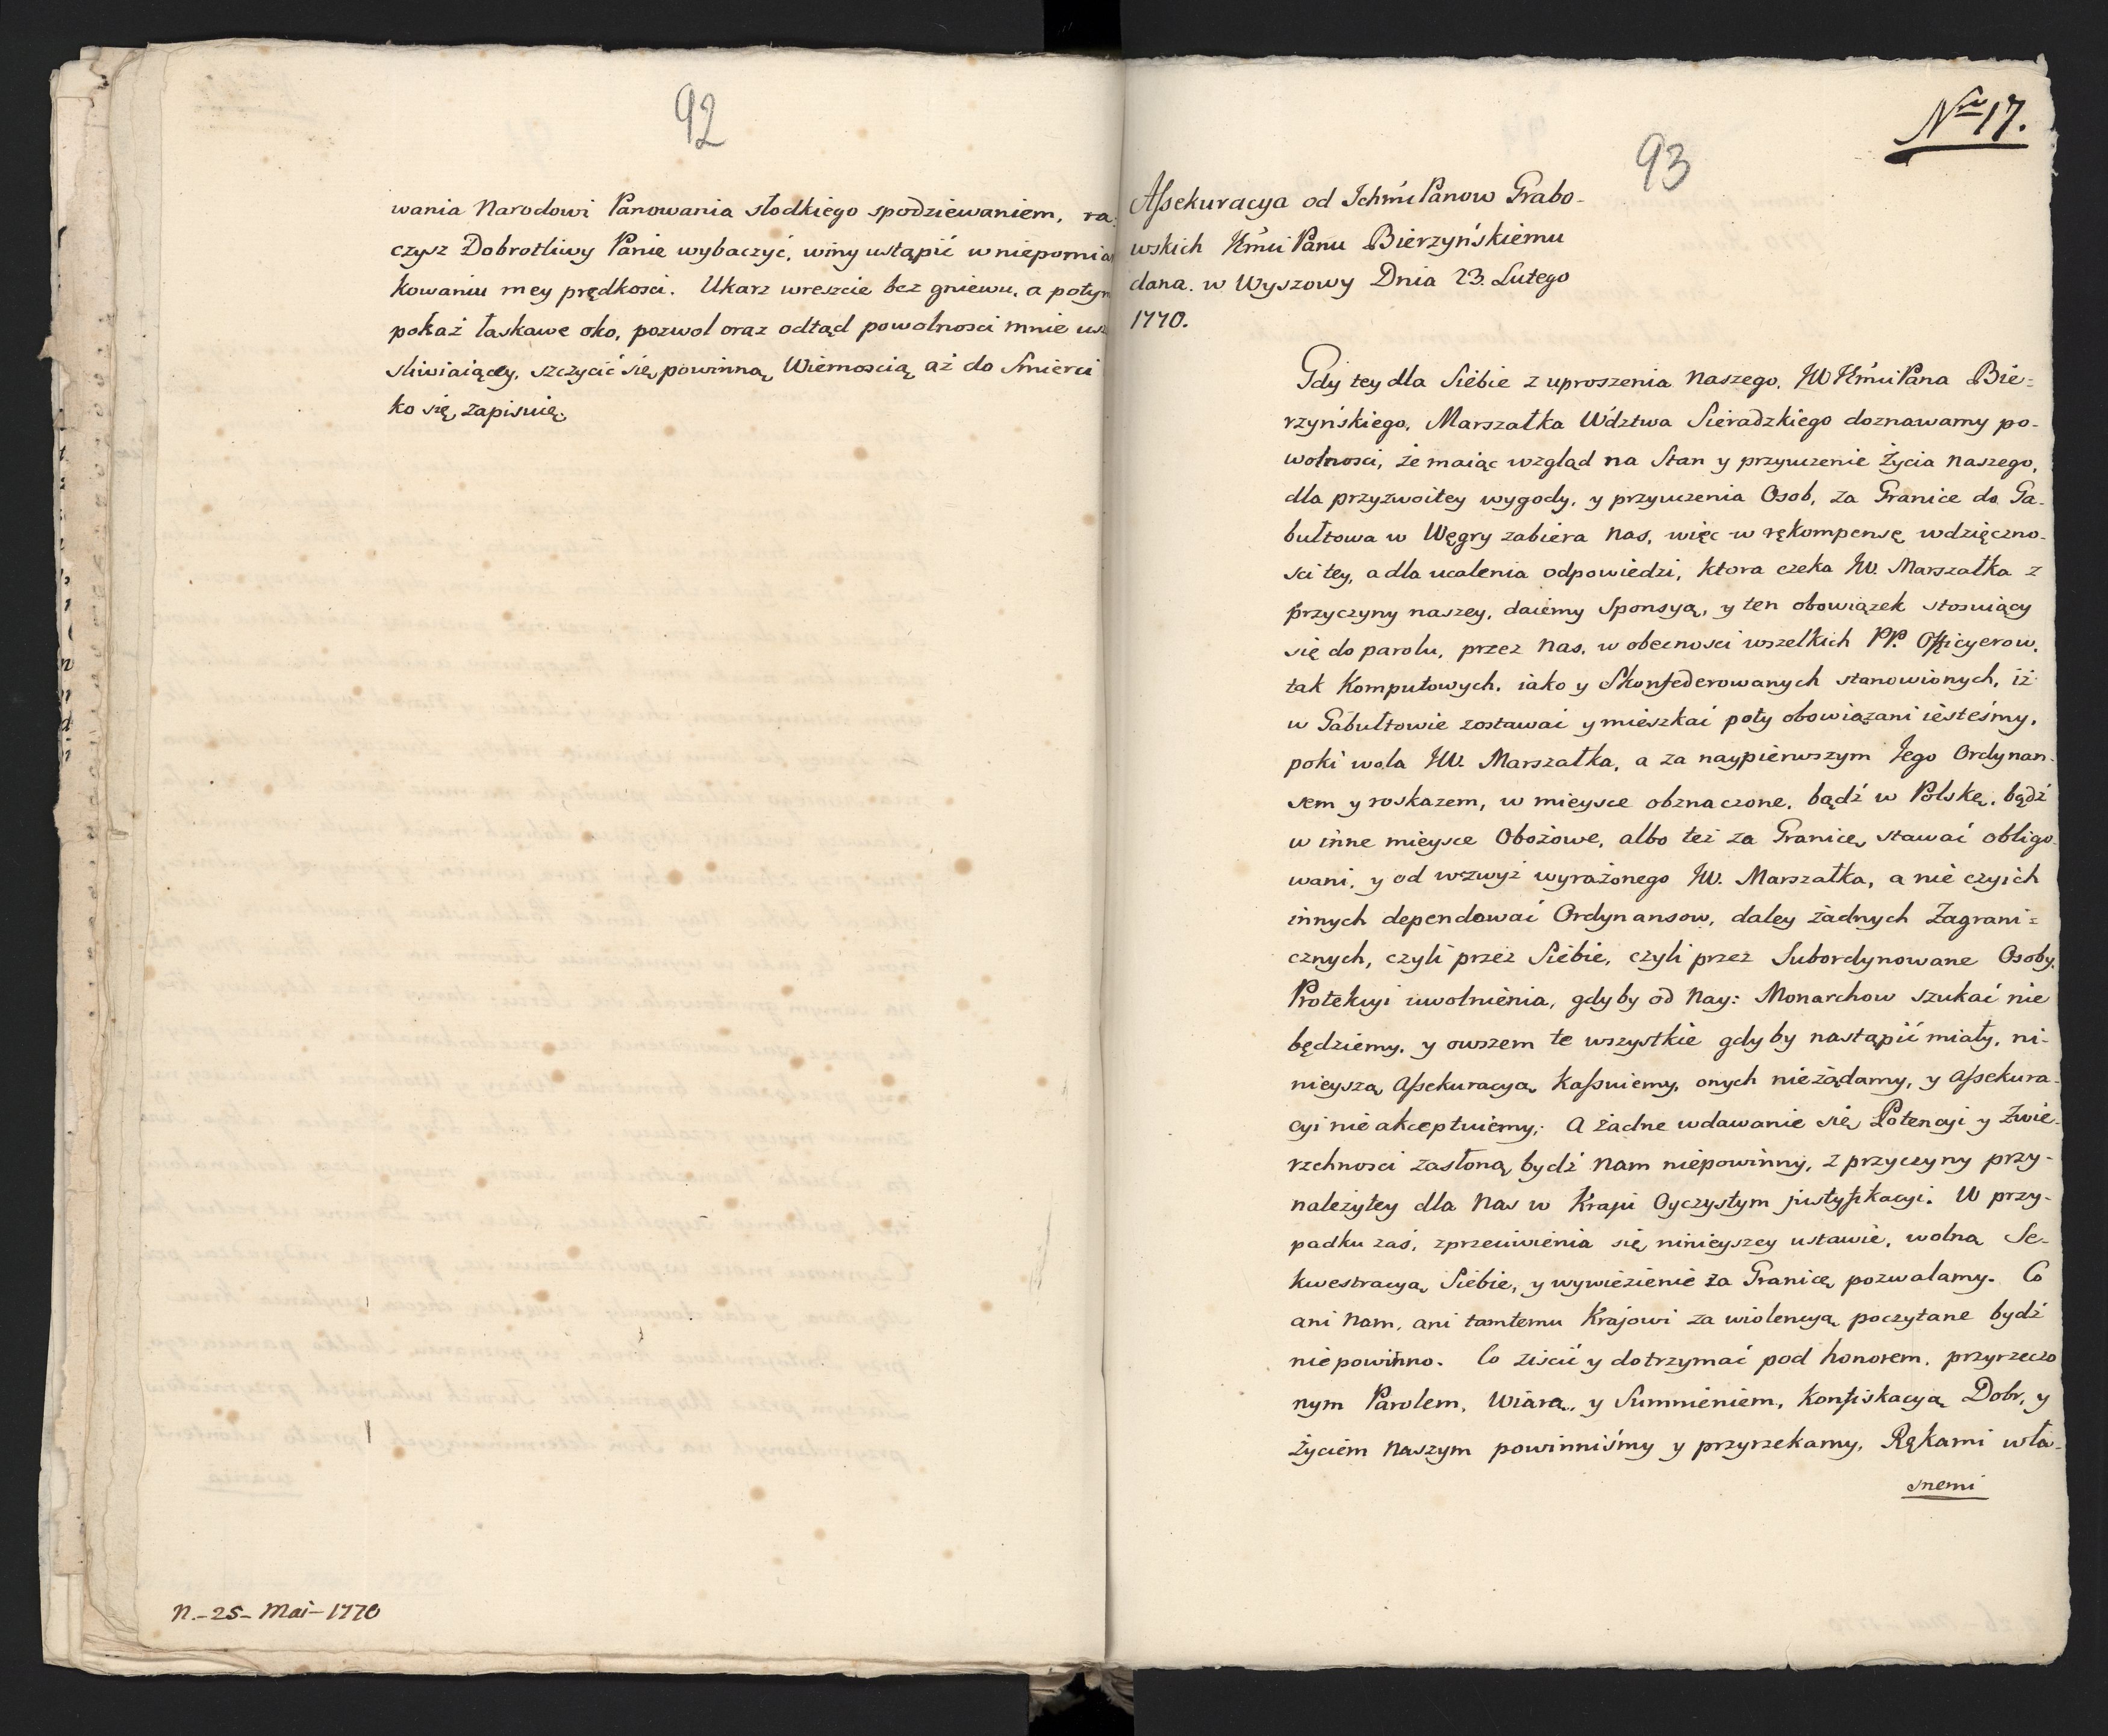 92
wania Narodowi Panowania słodkiego spodziewaniem, ra-
czysz Dobrotliwy Panie wybaczyć, winy ustąpić w niepomiar
kowaniu mey prędkosci. Ukarz wreszcie bez gniewu, a potym
pokaż łaskawe oko, pozwol oraz odtąd powolnosci mnie usz
sliwiaiącey, szczycić się powinną Wiernoscią aż do Smierci
ko się zapisuię.
n.-25- Mai-1770
Nro 17.
93
Assekuracya od Ichmć Panow Grabo-
wskich Jmći Panu Bierzyńskiemu
dana. w Wyszowy Dnia 23. Lutego
1770.
Gdy tey dla Siebie z uproszenia naszego, JW Jmći Pana Bie=
rzyńskiego, Marszałka Wdztwa Sieradzkiego doznawamy po-
wolnosci, że maiąc wzgląd na Stan y przyuczenie Życia naszego,
dla przyzwoitey wygody, y przyuczenia Osob, za Granice do Ga-
bułtowa w Węgry zabiera nas, więc w rękompensę wdzięczno-
sci tey, a dla ucalenia odpowiedzi, ktora czeka JW. Marszałka z
przyczyny naszey, daiemy Sponsyą, y ten obowiązek stosuiący
się do parolu, przez nas, w obecnosci wszelkich PP. Officyerow,
tak Komputowych, iako y Skonfederowanych stanowionych, iż
w Gabułtowie zostawać y mieszkać poty obowiązani iesteśmy,
poki wola JW. Marszałka, a za naypierwszym Jego Ordynan-
sem y roskazem, w mieysce obznaczone, bądź w Polskę, bądź
w inne mieysce Obożowe, albo też za Granicę stawać obligo-
wani, y od wzwyż wyrażonego JW. Marszałka, a nie czyich
innych dependować Ordynansow, daley żadnych Zagrani=
cznych, czyli przez Siebie, czyli przez Subordynowane Osoby,
Protekcyi uwolnienia, gdyby od Nay: Monarchow szukać nie
będziemy, y owszem te wszystkie gdyby nastąpić miały, ni-
nieyszą Assekuracyą Kassuiemy, onych nieżądamy, y assekura-
cyi nie akceptuiemy; A żadne wdawanie się Potencyi y Zwie-
rzchnosci zasłoną bydź nam niepowinny, z przyczyny przy-
należytey dla Nas w Kraju Oyczystym justyfikacyi. W przy-
padku zaś, zprzeciwienia się ninieyszey ustawie, wolną Se-
kwestracyą Siebie, y wywiezienie za Granicę pozwalamy. Co
ani Nam, ani tamtemu Krajowi za wiolencyą poczytane bydź
niepowinno. Co ziscić y dotrzymać pod honorem, przyrzeczo
nym Parolem, Wiarą, y Sumnieniem, Konfiskacyą Dobr, y
Życiem Naszym powinniśmy y przyrzekamy, Rękami wła-
snemi